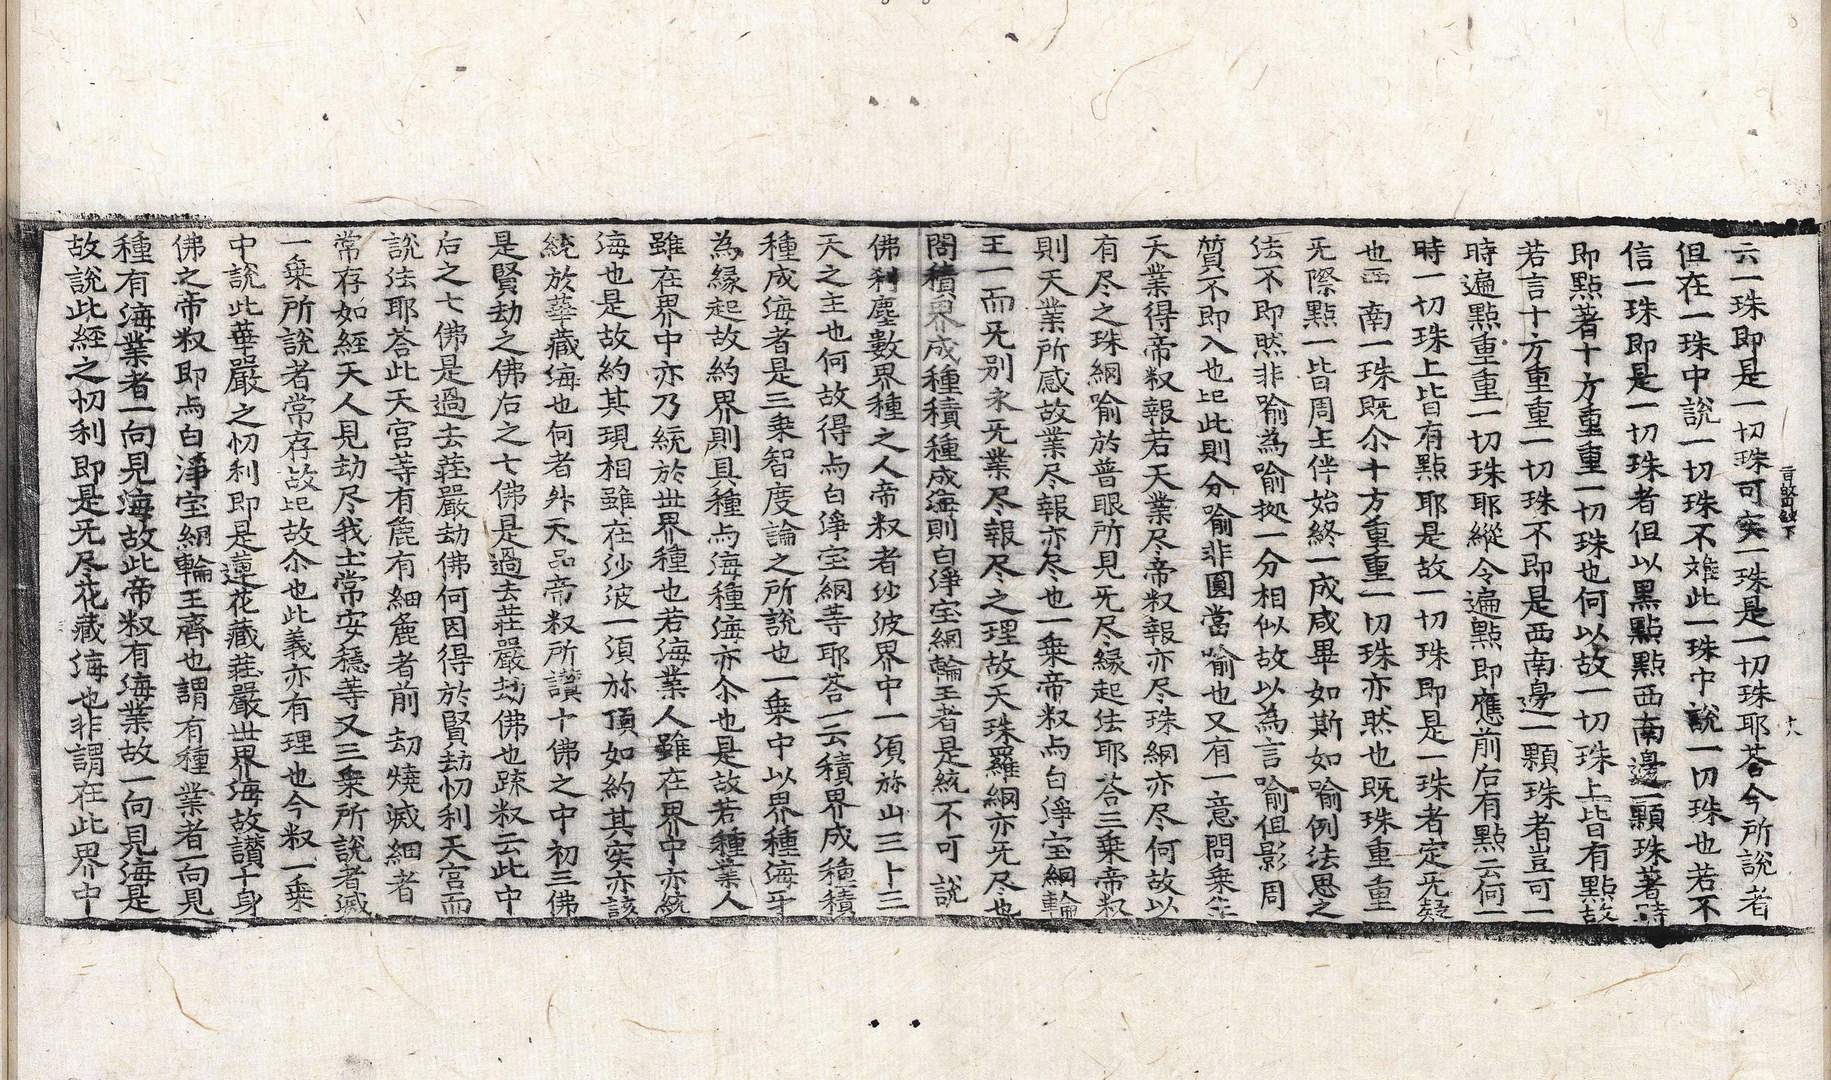 云一珠即是一切珠可矣一珠是一切珠耶荅今所說者
但在一珠中說一切珠不難此一珠中說一切珠也若不
信一珠即是一切珠者但以黑點點西南邊一顆珠著時
即點著十方重重一切珠也何以故一切珠上皆有點故
若言十方重重一切珠不即是西南邊一顆珠者豈可一
時遍點重重一切珠耶縱令遍點即應前后有點云何一
時一切珠上皆有點耶是故一切珠即是一珠者定无疑
也 南一珠既尒十方重重一切珠亦然也既珠重重
无際點一皆周主伴始終一成咸畢如斯如喻例法思之
法不即然非喻為喻拠一分相似故以為言喻但影周
質不即入也 此則分喻非圓當喻也又有一意問乗
天業得帝釈報若天業尽帝釈報亦尽珠綱亦尽何故以
有尽之珠綱喻於普眼所見无尽縁起法耶荅三乗帝釈
則天業所感故業尽報亦尽也一乗帝釈与白淨宝綱輪
王一而无別永无業尽報尽之理故天珠羅綱亦无尽也
問積界成種積種成海則白淨宝綱輪王者是統不可說
佛刹塵數界種之人帝釈者沙波界中一須弥山三十三
天之主也何故得与白淨宝綱等耶荅一云積界成種積
種成海者是三乗智度論之所說也一乗中以界種海互
為縁起故約界則具種与海種海亦尒也是故若種業人
雖在界中亦乃統於世界種也若海業人雖在界中亦統
海也是故約其現相雖在沙波一須弥頂如約其实亦該
統於華藏海也何者外天品帝釈所讃十佛之中初三佛
是賢劫之佛后之七佛是過去莊嚴劫佛也疏釈云此中
后之七佛是過去莊嚴劫佛何因得於賢劫忉利天宮而
說法耶荅此天宮等有麁有細麁者前劫燒滅細者
常存如經天人見劫尽我土常安穏等又三乗所說者滅
一乗所說者常存故 故尒也此義亦有理也今釈一乗
中說此華嚴之忉利即是蓮花藏莊嚴世界海故讃十身
佛之帝釈即与白淨宝綱輪王齊也謂有種業者一向見
種有海業者一向見海故此帝釈有海業故一向見海是
故說此經之忉利即是无尽花藏海也非謂在此界中